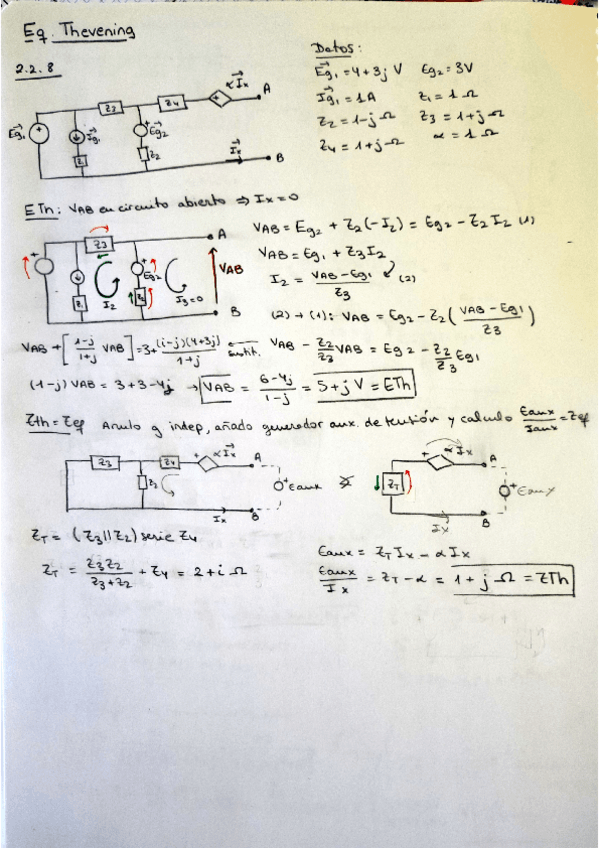 Eq. Thevening
Datos:
2.2.8
Eg1 = 4+3j V Eg2 = 3V
Ig1 = 1A Z1 = 1 Ω
Z2 = 1-j Ω Z3 = 1+j Ω
Z4 = 1+j Ω α = 1 Ω
αIx A
Z3 Z4
Eg1 + Ig1 + Eg2
Z1 Z2 Ix B
ETh: VAB en circuito abierto ⇒ Ix=0
VAB = Eg2 + Z2(-I2) = Eg2 - Z2 I2 (1)
VAB = Eg1 + Z3 I2
I2 = (VAB - Eg1)/Z3 (2)
(2)→(1): VAB = Eg2 - Z2 ((VAB - Eg1)/Z3)
Z3 A
+ + Eg2 VAB
Z1 I2 Z2 I3=0 B
VAB + [(1-j)/(1+j) VAB] = 3 + (1-j)(4+3j)/(1+j) ← sustit. VAB - Z2/Z3 VAB = Eg2 - Z2/Z3 Eg1
(1-j) VAB = 3+3-4j → VAB = (6-4j)/(1-j) = 5+j V = ETh
Zth = Zeq Anulo g indep, añado generador aux. de tensión y calculo Eaux/Iaux = Zeq
Z3 Z4 αIx A
Z2 + Eaux
Ix B
αIx A
ZT + Eaux
Ix B
ZT = (Z3||Z2) serie Z4
ZT = Z3Z2/(Z3+Z2) + Z4 = 2+i Ω
Eaux = ZT Ix - αIx
Eaux/Ix = ZT - α = 1+j Ω = ZTh